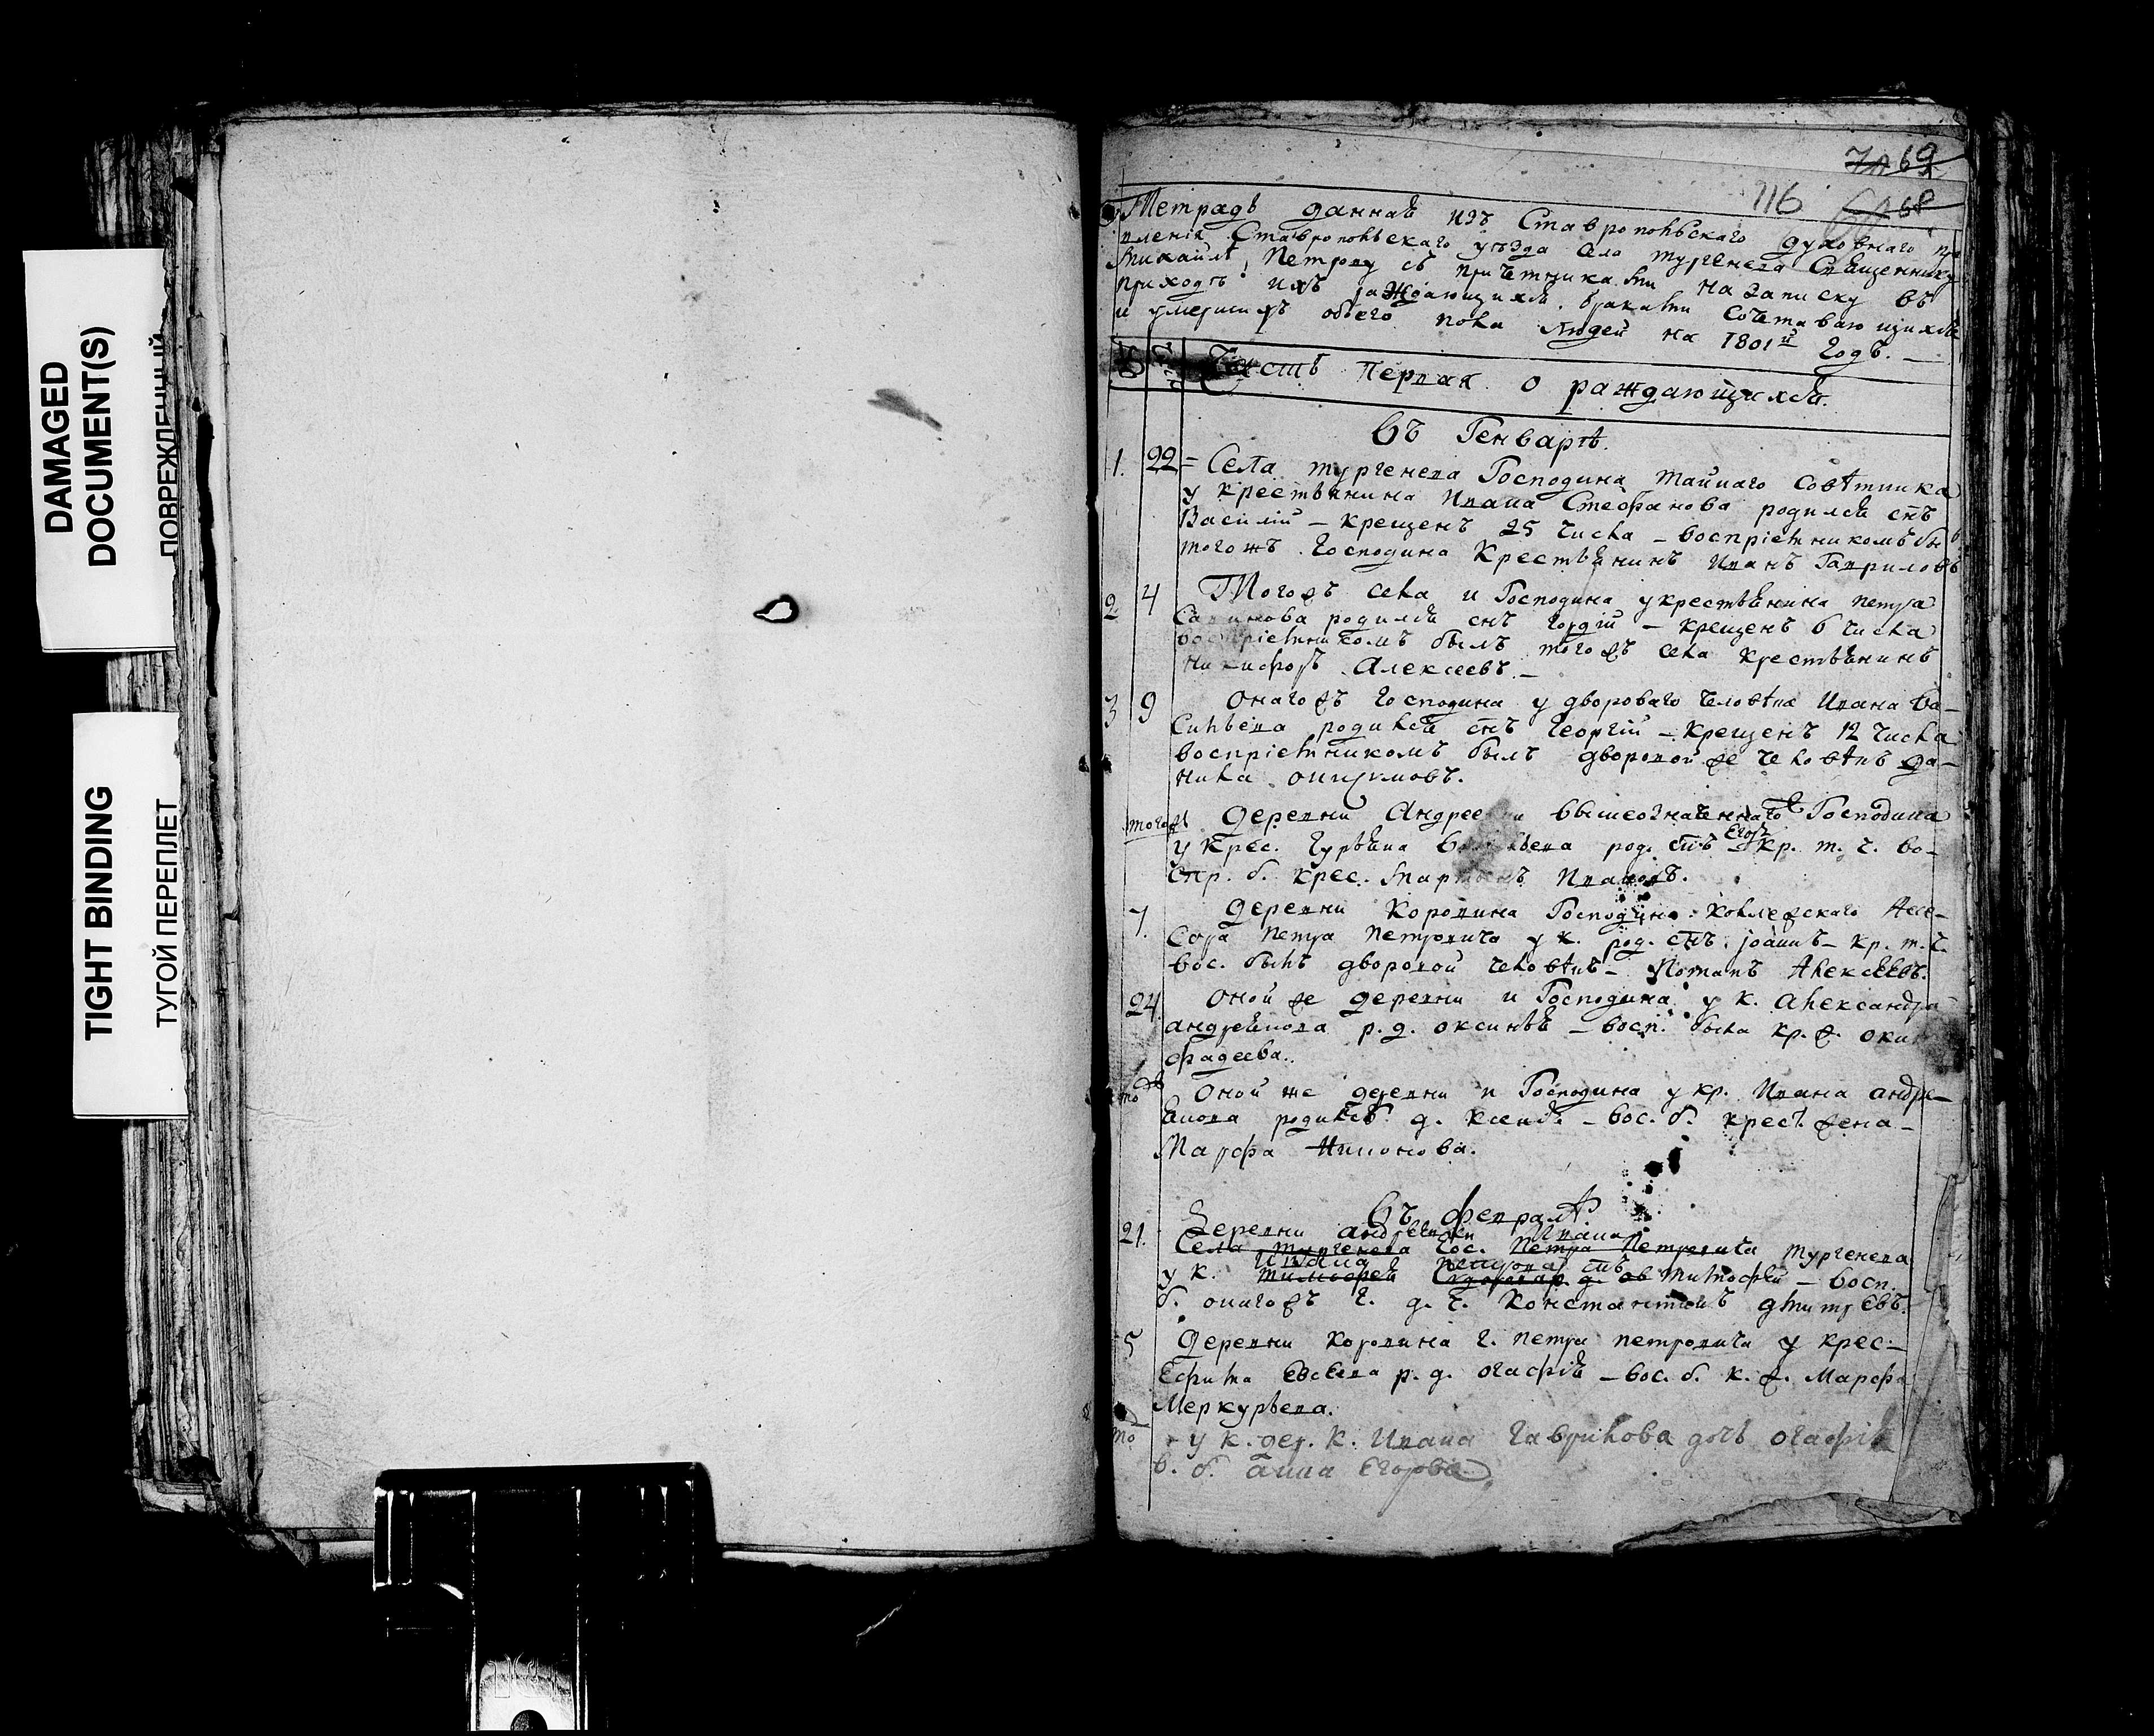 DAMAGED
DOCUMENT(S)
TIGHT BINDING
ТУГОЙ ПЕРЕПЛЕТ
69
116
68
Тетрадь данная изъ Ставропольскаго духовнаго пра
вленія Ставропольскаго уѣзда села Тургенева Священнику
Михаилѣ Петрову съ причетниками на записку въ
приходѣ ихъ раждающихся браками сочетавающихся
и умершихъ обоего пола людей на 1801й годъ.
Часть первая о раждающихся.
Въ Генварѣ.
1. 22 = Села Тургенева Господина тайнаго совѣтника
у крестьянина Ивана Стефанова родился снъ
Василий – крещенъ 25 числа – воспріемникомъ бы
тогожъ Господина Крестьянинъ Иванъ Гавриловъ
2 4 Тогожъ села и Господина у крестьянина Петра
родился снъ Гордій – крещенъ 6 числа
воспріемникомъ былъ тогожъ села крестьянинъ
Никифоръ Алексеевъ. –
3 9 Онагожъ Господина у двороваго человѣка Ивана Ва-
сильева родился снъ Георгій – крещенъ 12 числа
воспріемникомъ былъ дворовой же человѣкъ Да-
нила Онисимовъ.
тогожъ Деревни Андреевки вышеозначеннаго Господина
у крес. Гурьяна род. снъ Егоръ кр. т. ч. во-
спр. б. крес. Ивановъ.
7. Деревни Коровина Господина Коллежскаго Асе-
сора Петра Петровича у к. род. снъ Іоаннъ – кр. т. ч.
вос. былъ дворовой человѣкъ – Потапъ Алексѣевъ.
24. Оной же деревни и Господина у к. Александра
Андреянова р. д. Оксинья – восп. была кр. ж.
Фадеева.
Оной же деревни и Господина у кр. Ивана Андре-
янова родилсь д. – вос. б. крес. жена –
Марфа
Въ Февралѣ
Деревни Андреевки Ивана
21. Села Тургенева Гос. Петра Петровича Тургенева
Ивана Петрова снъ
у к. Тимофей – восп.
б. онагожъ г. д. ч. Константинъ Дмитревъ.
5 Деревни Коровина г. Петра Петровича у крес.
Ефима Евсеева р. д. Огафія – вос. б. к. ж. Марфа
Меркурьева.
то у к. дер. К. Ивана Гаврилова дочь Огафія
в. б. Анна Егорова